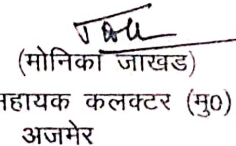 (मोनिका जाखड)
सहायक कलक्टर (मु0)
अजमेर